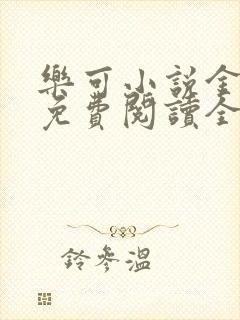 樂可小說全
免費閱讀全
鈴參溫